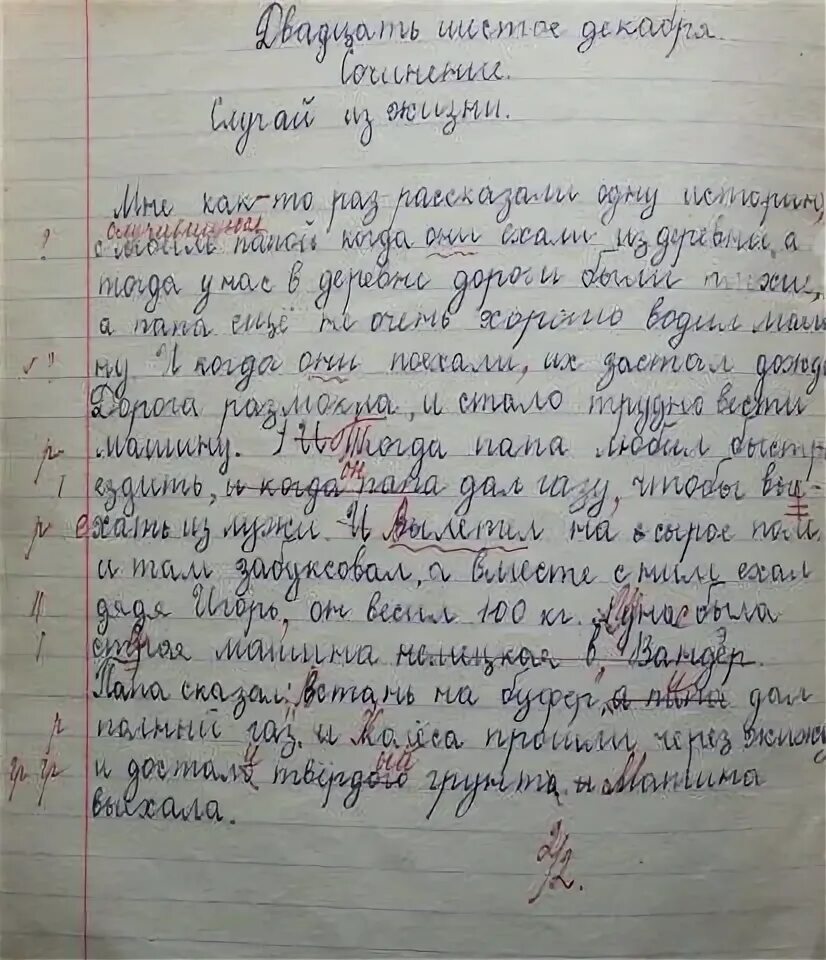 Двадцать шистое декабря.
Сочинение.
Случай из жизни.
Мне как-то раз рассказали одну историю,
случившуюся
с моим папой когда они ехали из деревни, а
тогда у нас в деревне дороги были плохие,
а папа ещё не очень хорошо водил маши
ну. И когда они поехали, их застал дождь
Дорога размокла, и стало трудно вести
машину. Тогда папа любил быстр
он
ездить, и когда папа дал газу, чтобы вы-
ехать из лужи. И вылетил на сырое поле
и там забуксовал, а вместе с ним ехал
дядя Игорь, он весил 100 кг. А у нас была
старая машина немецкая в Вандер.
Папа сказал: "Встань на буфер", а папа дал
полный газ. и Колёса прошли через жижу
и достали твёрдого грунта и Машина
выехала.
2/2.